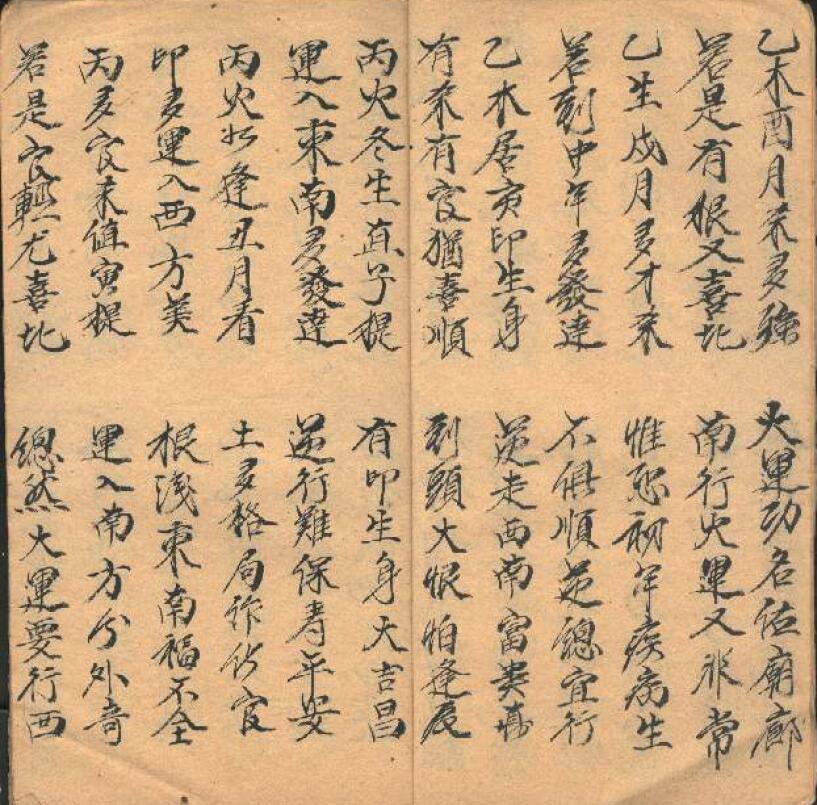 乙木酉月杀多強 火運功名佐廟廊
若是有根又喜比 南行火運又非常
乙生戌月多才杀 惟恐初年疾病生
若到中年多發達 不俱順逆總宜行
乙木居寅印生身 逆走西南富貴
有杀有官猶喜順 到頭大恨怕逢辰
丙火冬生直子提 有印生身大吉昌
運入東南多發達 逆行難保寿平安
丙火如逢丑月看 土多格局作伤官
印多運入西方美 根浅東南福不全
丙多官杀值寅提 運入南方分外奇
若是官輕尤喜比 總然大運要行西